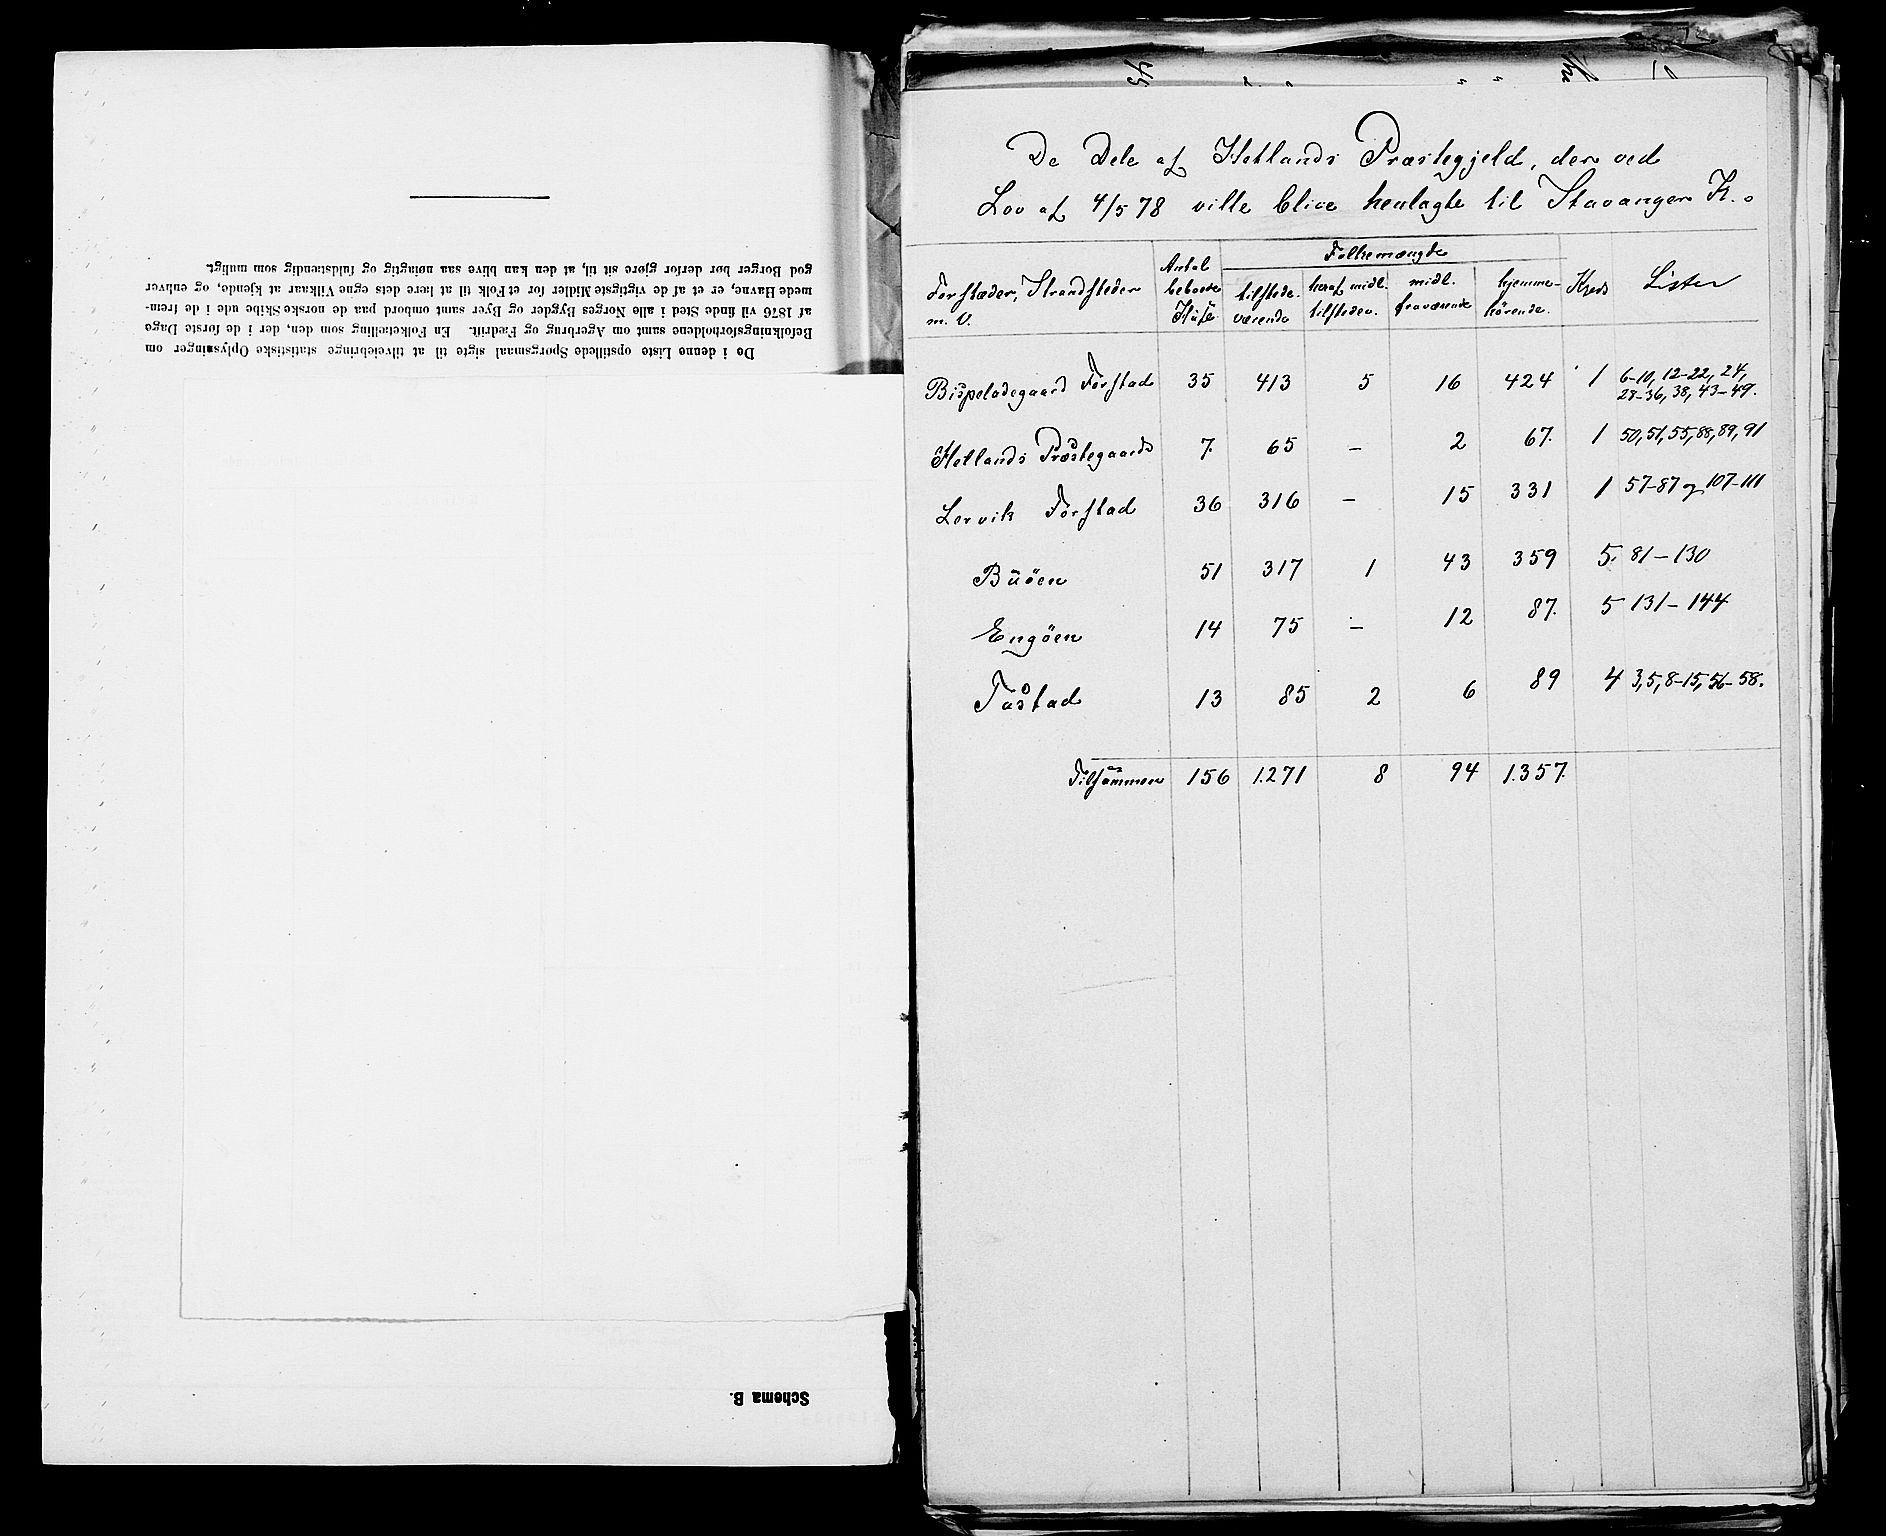 De i denne Liste opstillede Spørgsmaal sigte til at tilveiebringe statistiske Oplysninger om
Befolkningsforholdene samt om Agerbrug og Fædrift. En Folketælling som den, der i de første Dage
af 1876 vil finde Sted i alle Norges Bygder og Byer samt ombord paa de norske Skibe ude i de frem-
mede Havne, er et af de vigtigste Midler for et Folk til at lære dets egne Vilkaar at kjende, og enhver
god Borger bør derfor gjøre sit til, at den kan blive saa nøiagtig og fuldstændig som muligt.
Schema B.
De Dele af Hetlands Præstegjeld, der ved
Lov af 4/5 78 ville blive henlagte til Stavanger K.
Forstæder, Strandsteder m. V. Antal beboede Huse Folkemængde tilstede-værende heraf midl. tilstedev. midl. fraværende hjemme-hørende Kreds Lister
Bispeladegaard Forstad 35 413 5 16 424 1 6-10, 12-22, 24, 28-36, 38, 43-49.
Hetlands Præstegaards 7. 65 – 2 67. 1 50, 51, 55, 88, 89, 91
Lervik Forstad 36 316 – 15 331 1 57-87 og 107-111
Buöen 51 317 1 43 359 5. 81-130
Engöen 14 75 – 12 87. 5 131-144
Tastad 13 85 2 6 89 4 3, 5, 8-15, 56-58.
Tilsammen 156 1.271 8 94 1.357.